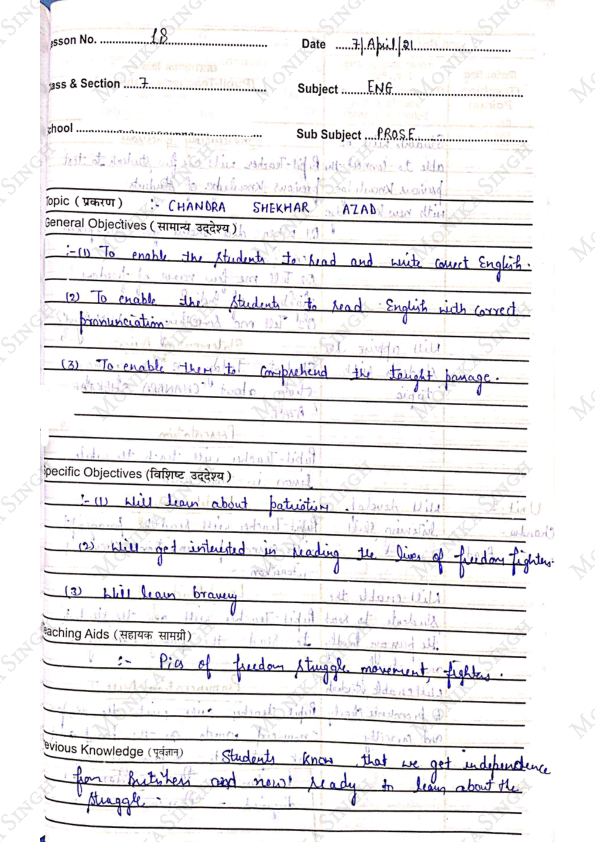 esson No. 18
Date 7/April/21
ass & Section 7
Subject ENG
chool
Sub Subject PROSE
Topic ( प्रकरण ) :- CHANDRA SHEKHAR AZAD
General Objectives ( सामान्य उद्देश्य )
:-(1) To enable the students to read and write correct English.
(2) To enable the students to read English with correct
pronunciation.
(3) To enable them to comprehend the taught passage.
pecific Objectives (विशिष्ट उद्देश्य )
:-(1) Will learn about patriotism.
(2) Will get interested in reading the lives of freedom fighters.
(3) Will learn bravery
eaching Aids (सहायक सामग्री)
:- Pics of freedom struggle movement, fighters.
evious Knowledge (पूर्वज्ञान) Students know that we get independence
from Britishers and now ready to learn about the
struggle.
MONIKA SINGH